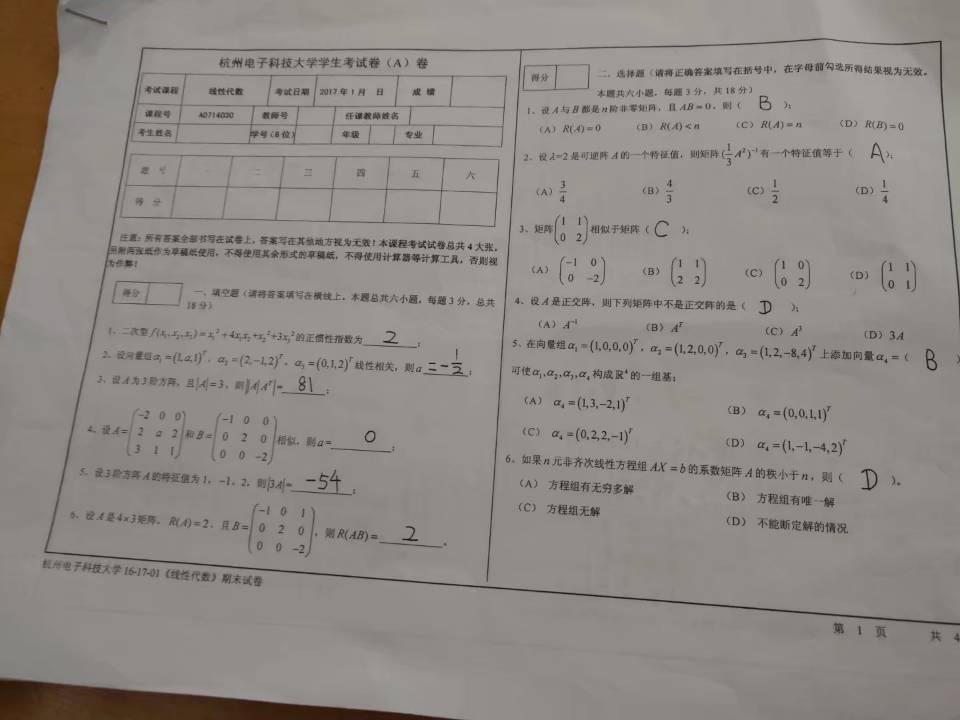 杭州电子科技大学学生考试卷（A）卷
考试课程 线性代数 考试日期 2017年1月 日 成 绩
课程号 A0714030 教师号 任课教师姓名
考生姓名 学号（8位） 年级 专业
题 号 一 二 三 四 五 六
得 分
注意：所有答案全部书写在试卷上，答案写在其他地方视为无效！本课程考试试卷总共4大张，
另附两张纸作为草稿纸使用，不得使用其余形式的草稿纸，不得使用计算器等计算工具，否则视
为作弊！
得分
一、填空题（请将答案填写在横线上。本题总共六小题，每题3分，总共
18分）
1、二次型 f(x₁,x₂,x₃)=x₁²+4x₁x₂+x₂²+3x₃² 的正惯性指数为 2 ；
2、设向量组α₁=(1,a,1)ᵀ，α₂=(2,-1,2)ᵀ，α₃=(0,1,2)ᵀ 线性相关，则a = -1/2 ；
3、设A为3阶方阵，且|A|=3，则||A|Aᵀ|= 81 ；
4、设A=(-2 0 0; 2 a 2; 3 1 1)和B=(-1 0 0; 0 2 0; 0 0 -2)相似，则a= 0 ；
5、设3阶方阵A的特征值为1，-1，2，则|3A|= -54 ；
6、设A是4×3矩阵，R(A)=2，且B=(-1 0 1; 0 2 0; 0 0 -2)，则R(AB)= 2 。
杭州电子科技大学16-17-01《线性代数》期末试卷
得分
二、选择题（请将正确答案填写在括号中，在字母前勾选所得结果视为无效。
本题共六小题，每题3分，共18分）
1、设A与B都是n阶非零矩阵，且AB=0，则（ B ）；
（A）R(A)=0 （B）R(A)<n （C）R(A)=n （D）R(B)=0
2、设λ=2是可逆阵A的一个特征值，则矩阵(1/3 A²)⁻¹有一个特征值等于（ A ）；
（A）3/4 （B）4/3 （C）1/2 （D）1/4
3、矩阵(1 1; 0 2)相似于矩阵（ C ）；
（A）(-1 0; 0 -2) （B）(1 1; 2 2) （C）(1 0; 0 2) （D）(1 1; 0 1)
4、设A是正交阵，则下列矩阵中不是正交阵的是（ D ）；
（A）A⁻¹ （B）Aᵀ （C）A³ （D）3A
5、在向量组α₁=(1,0,0,0)ᵀ，α₂=(1,2,0,0)ᵀ，α₃=(1,2,-8,4)ᵀ上添加向量α₄=（ B ）
可使α₁,α₂,α₃,α₄构成ℝ⁴的一组基；
（A）α₄=(1,3,-2,1)ᵀ （B）α₄=(0,0,1,1)ᵀ
（C）α₄=(0,2,2,-1)ᵀ （D）α₄=(1,-1,-4,2)ᵀ
6、如果n元非齐次线性方程组AX=b的系数矩阵A的秩小于n，则（ D ）。
（A）方程组有无穷多解 （B）方程组有唯一解
（C）方程组无解 （D）不能断定解的情况
第 1 页 共 4